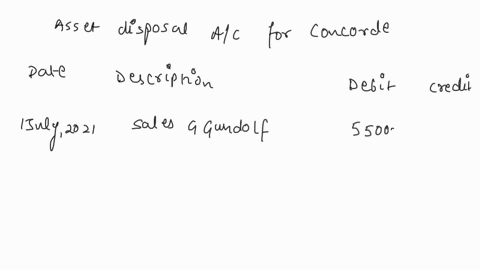 Asset disposal A/C for Concorde
Date Description Debit credit
1July,2021 Sales G Gundolf 5500